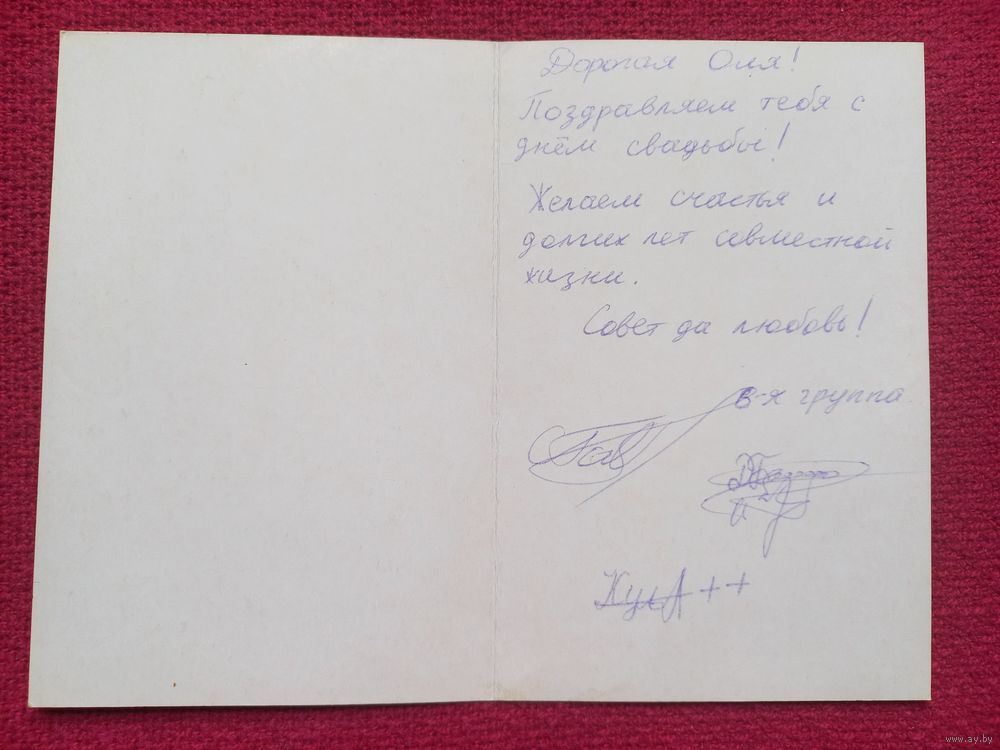 Дорогая Оля!
Поздравляем тебя с
днём свадьбы!
Желаем счастья и
долгих лет совместной
жизни.
Совет да любовь!
группа
www.ay.by